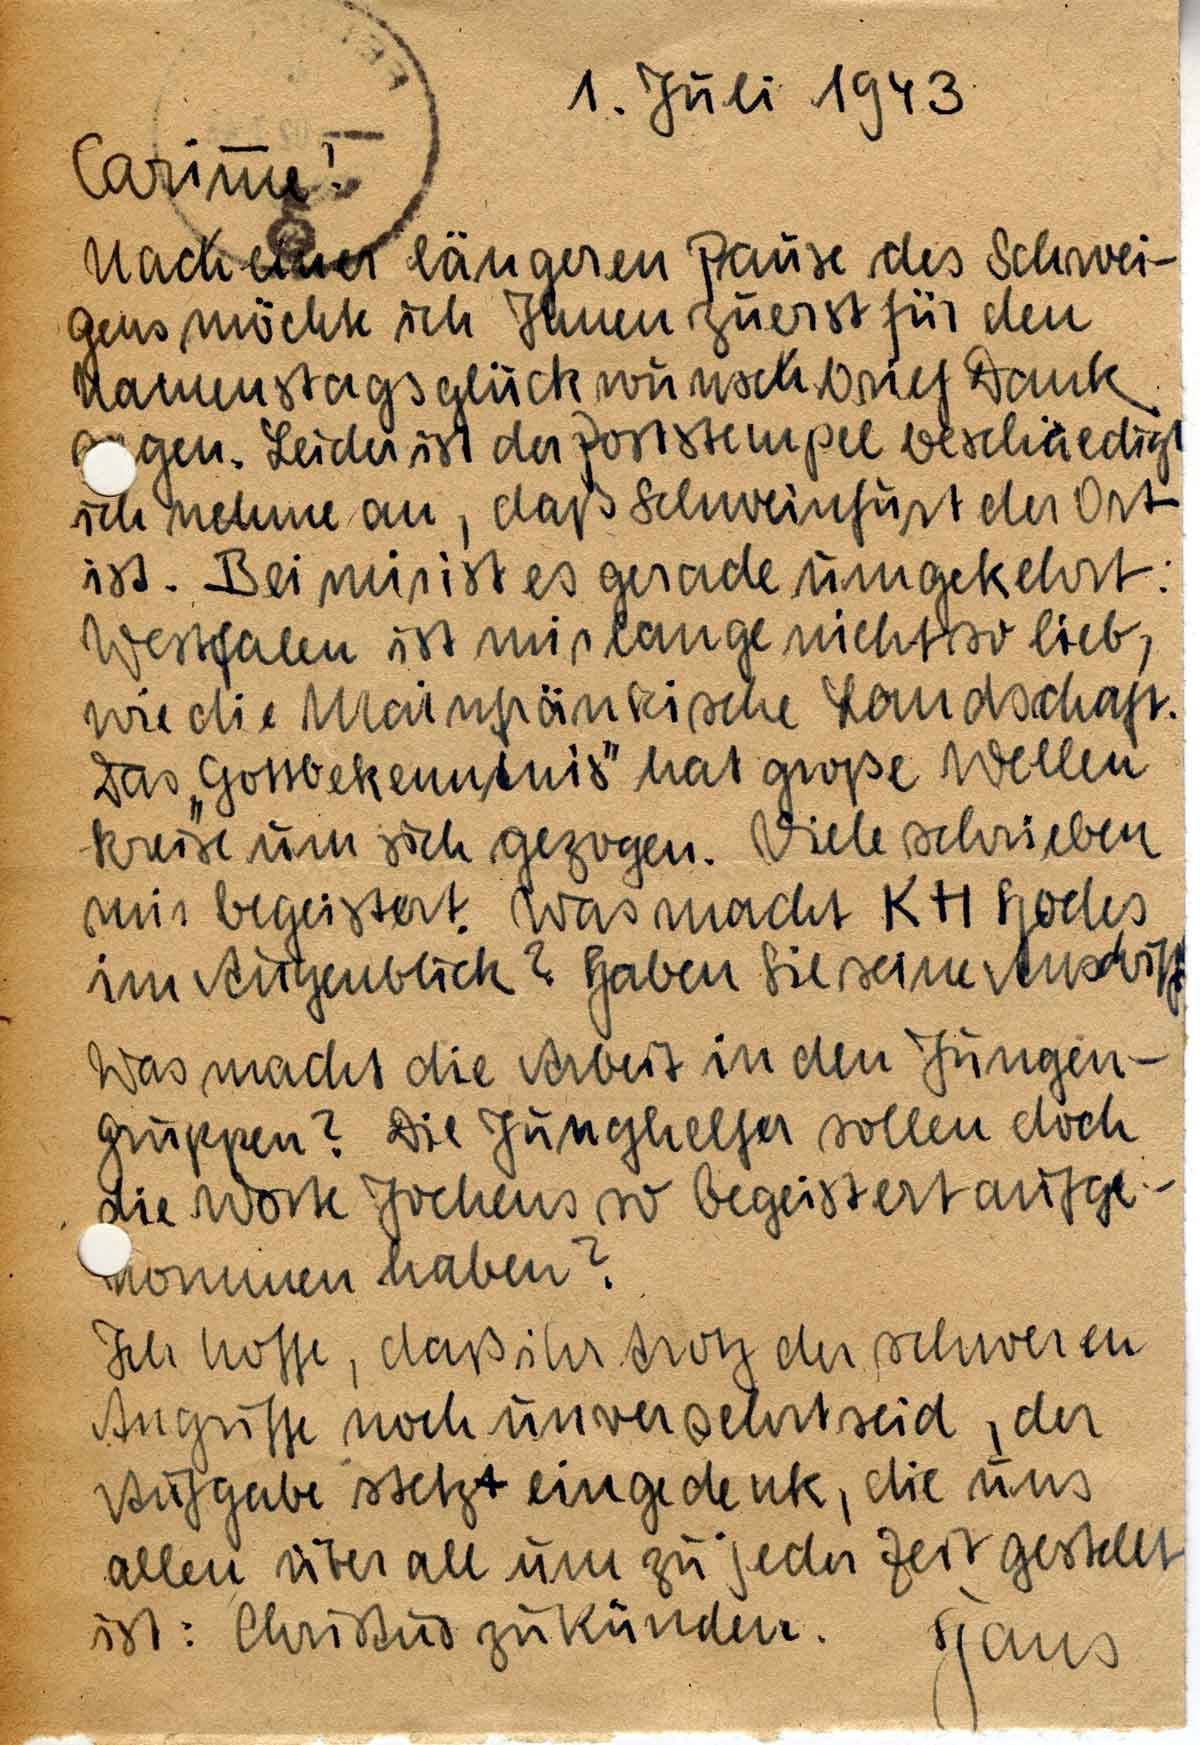 1. Juli 1943
Carissime!
Nach einer längeren Pause des Schwei-
gens möchte ich Ihnen zuerst für den
Namenstagsglückwunschbrief Dank
sagen. Leider ist der Poststempel beschaedigt
ich nehme an, daß Schweinfurt der Ort
ist. Bei mir ist es gerade umgekehrt:
Westfalen ist mir lange nicht so lieb,
wie die Mainfränkische Landschaft.
Das „Gottbekenntnis" hat große Wellen
kreise um sich gezogen. Viele schrieben
mir begeistert. Was macht KH
im Augenblick? Haben Sie seine Anschrift
Was macht die Arbeit in den Jungen-
gruppen? Die Junghelfer sollen doch
die Worte Jochens so begeistert aufge-
nommen haben?
Ich hoffe, daß ihr trotz der schweren
Angriffe noch unversehrt seid, der
Aufgabe stetzt eingedenk, die uns
allen überall um zu jeder Zeit gestellt
ist: Christus zu künden.
Hans